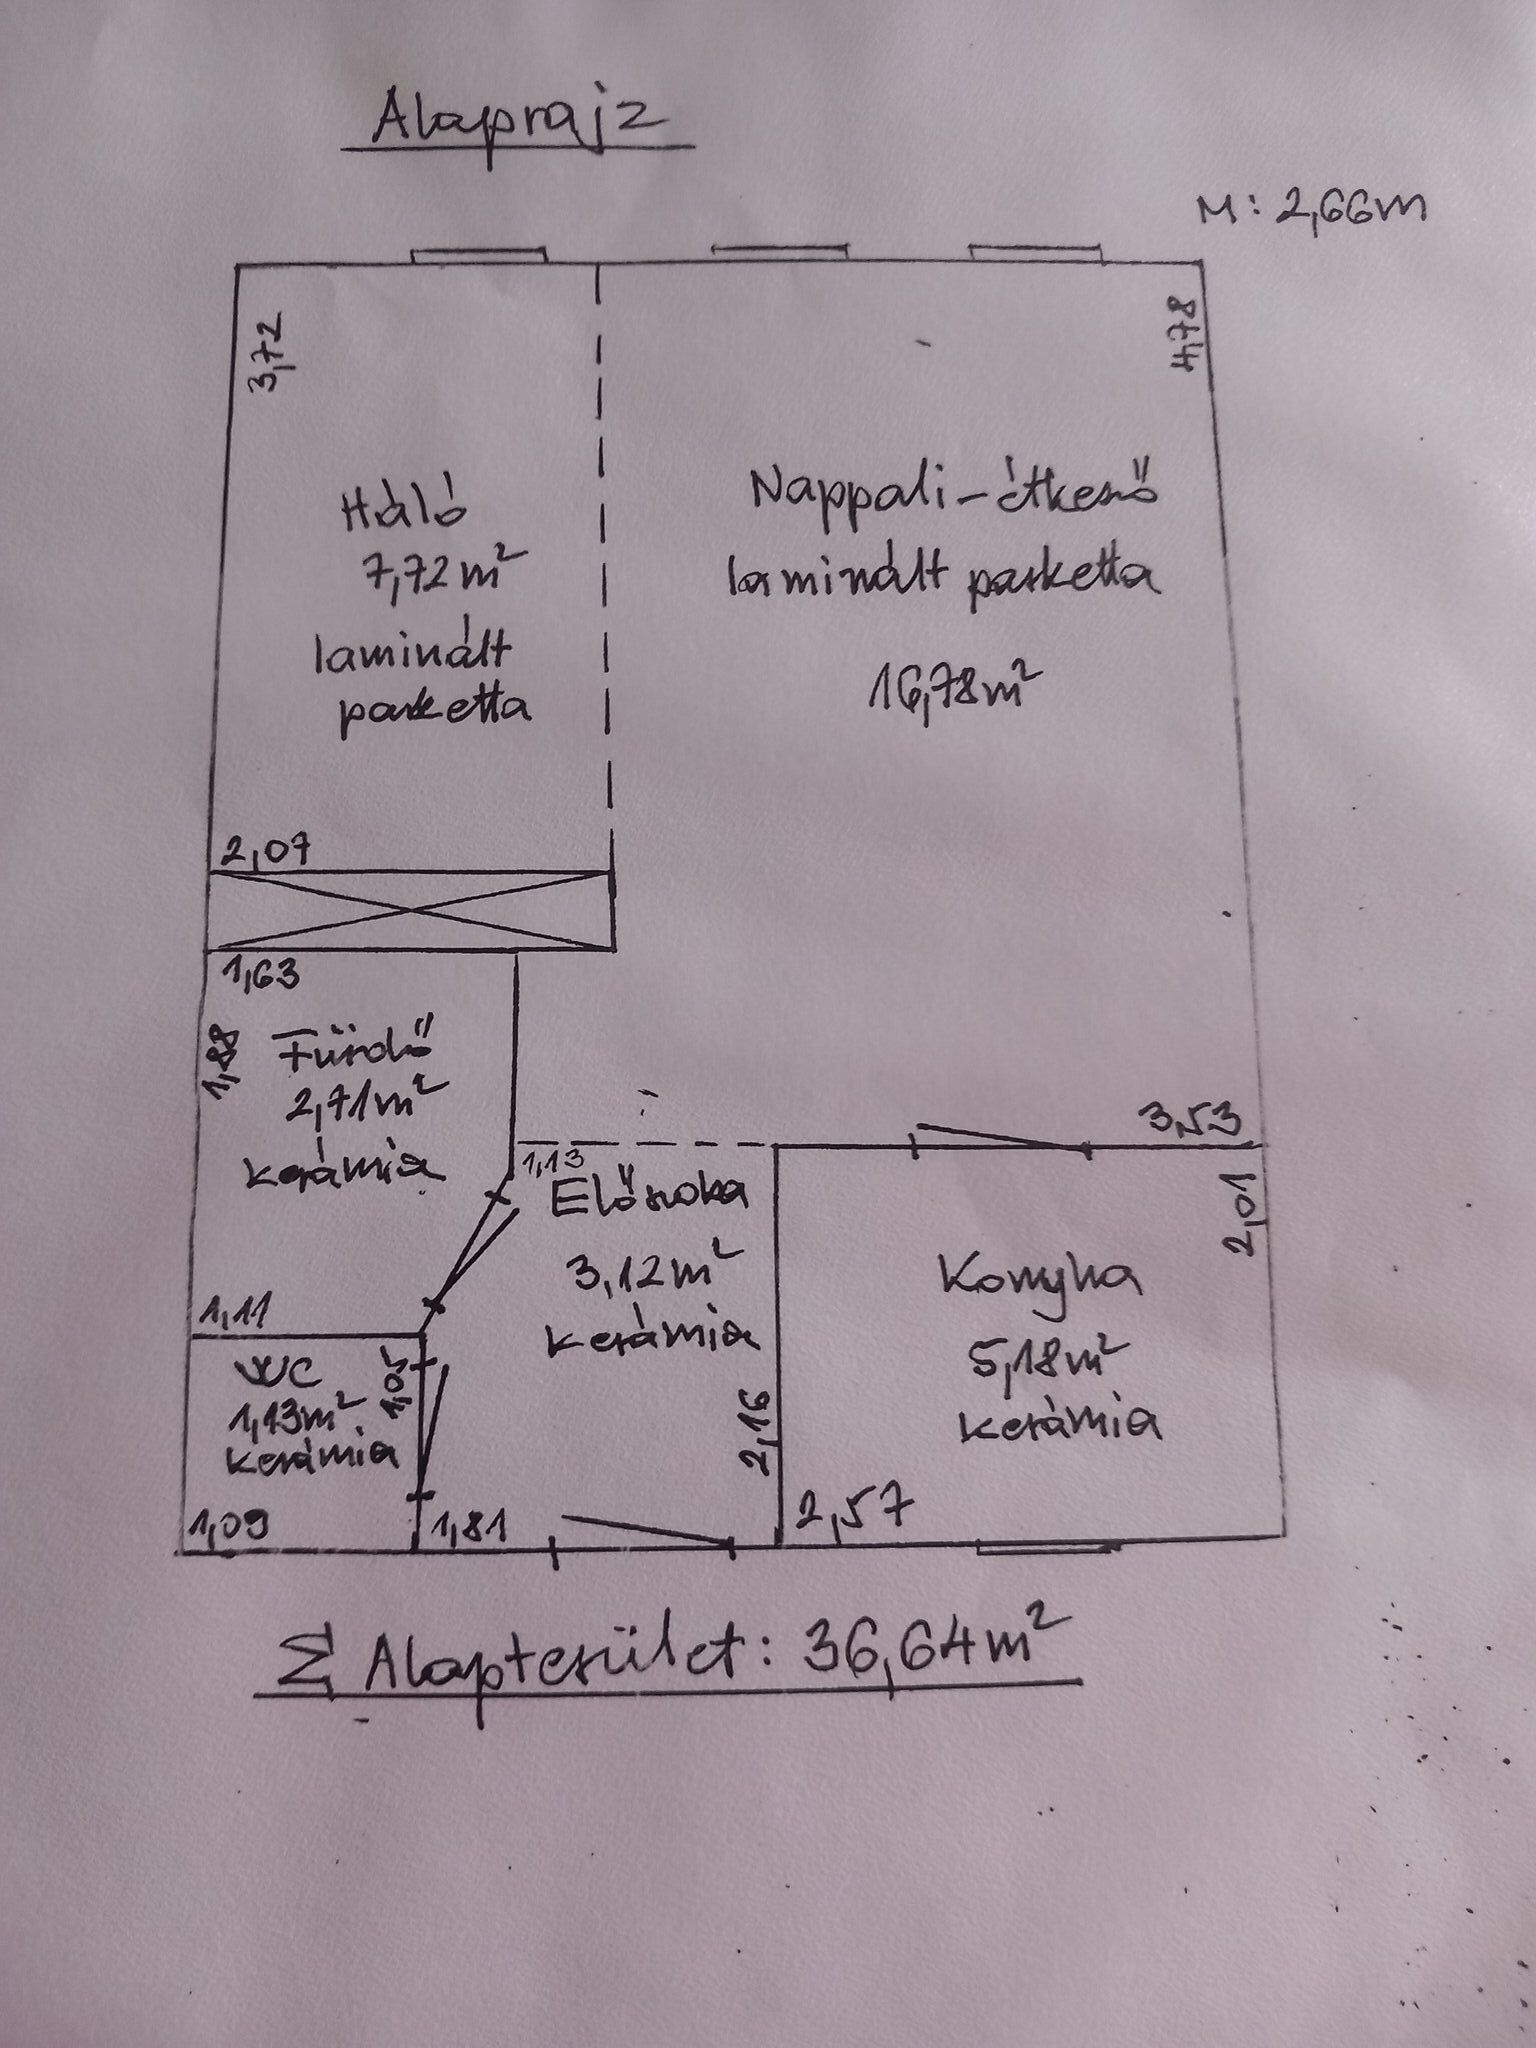 Alaprajz
M: 2,66m
3,72
4,78
Háló
7,72m²
laminált
parketta
Nappali-étkező
laminált parketta
16,78m²
2,07
1,63
1,88
Fürdő
2,71m²
kerámia
3,53
1,13
Előszoba
3,12m²
kerámia
2,01
Konyha
5,18m²
kerámia
1,11
WC
1,13m²
kerámia
2,16
1,09
1,81
2,57
Σ Alapterület: 36,64m²